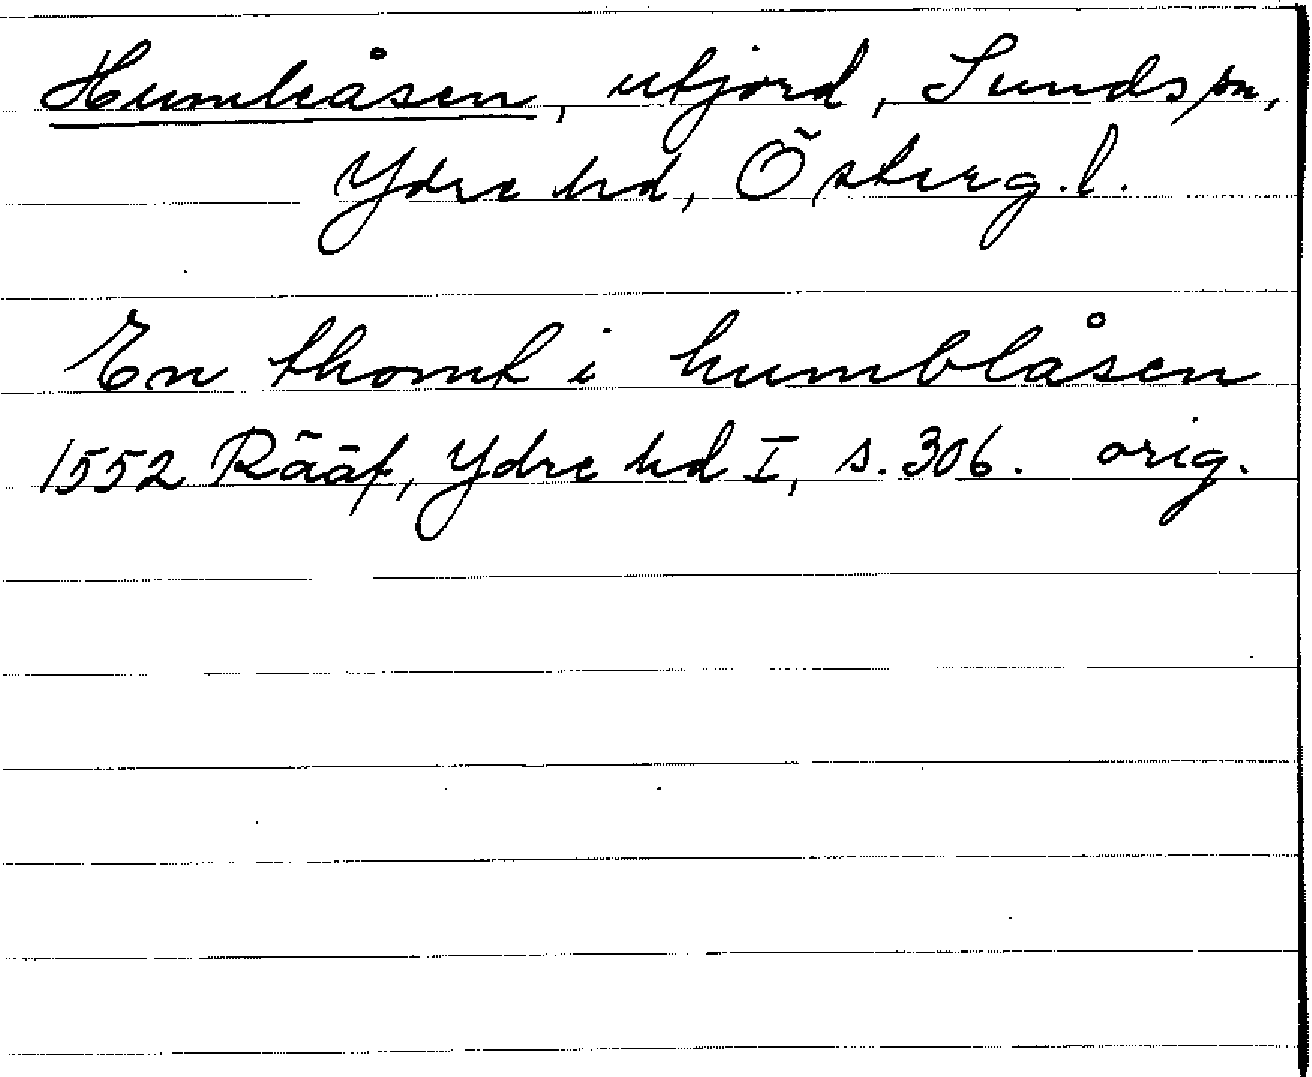 Humleåsen, utjord, Sunds sn,
Ydre hd, Österg. l.
En thomt i humblåsen
1552 Rääf, Ydre hd I, s. 306. orig.